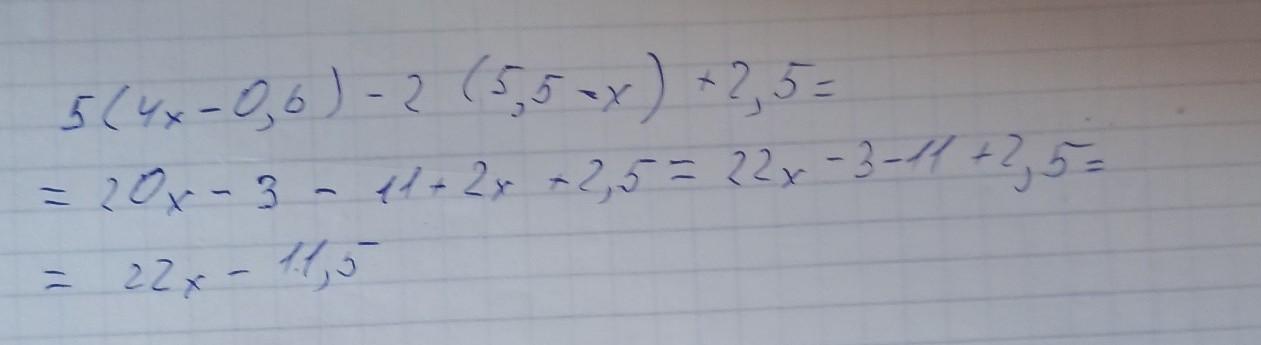 5(4x-0,6)-2(5,5-x)+2,5=
=20x-3-11+2x+2,5=22x-3-11+2,5=
=22x-11,5